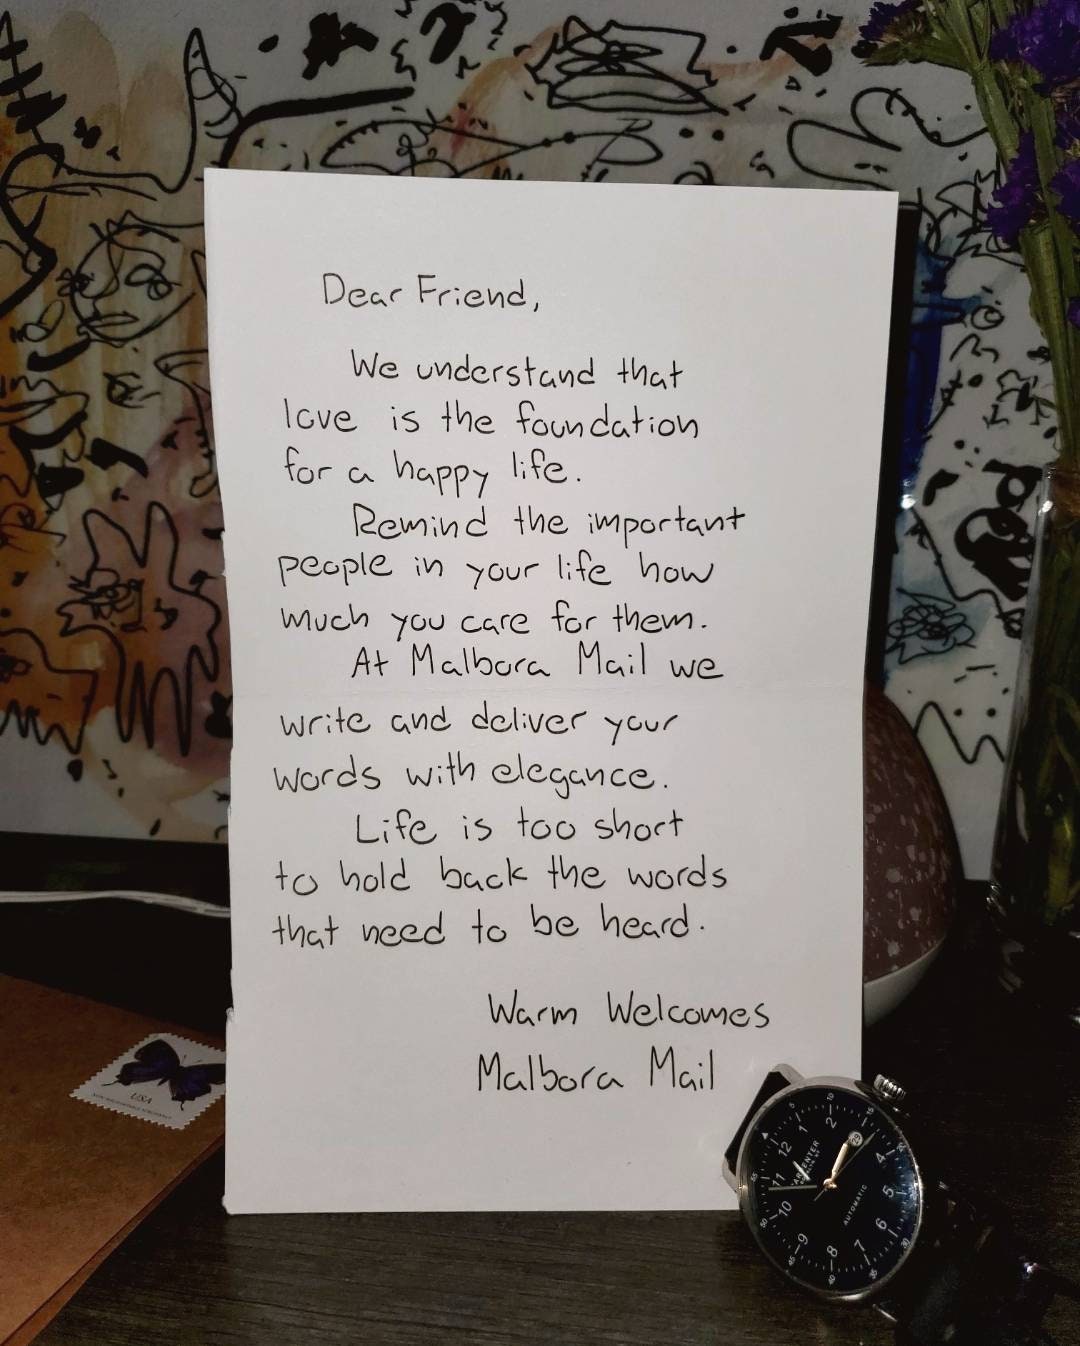 Dear Friend,
We understand that
love is the foundation
for a happy life.
Remind the important
people in your life how
much you care for them.
At Malbora Mail we
write and deliver your
words with elegance.
Life is too short
to hold back the words
that need to be heard.
Warm Welcomes
Malbora Mail
USA
AUTOMATIC
12
1
2
4
5
6
7
8
9
10
11